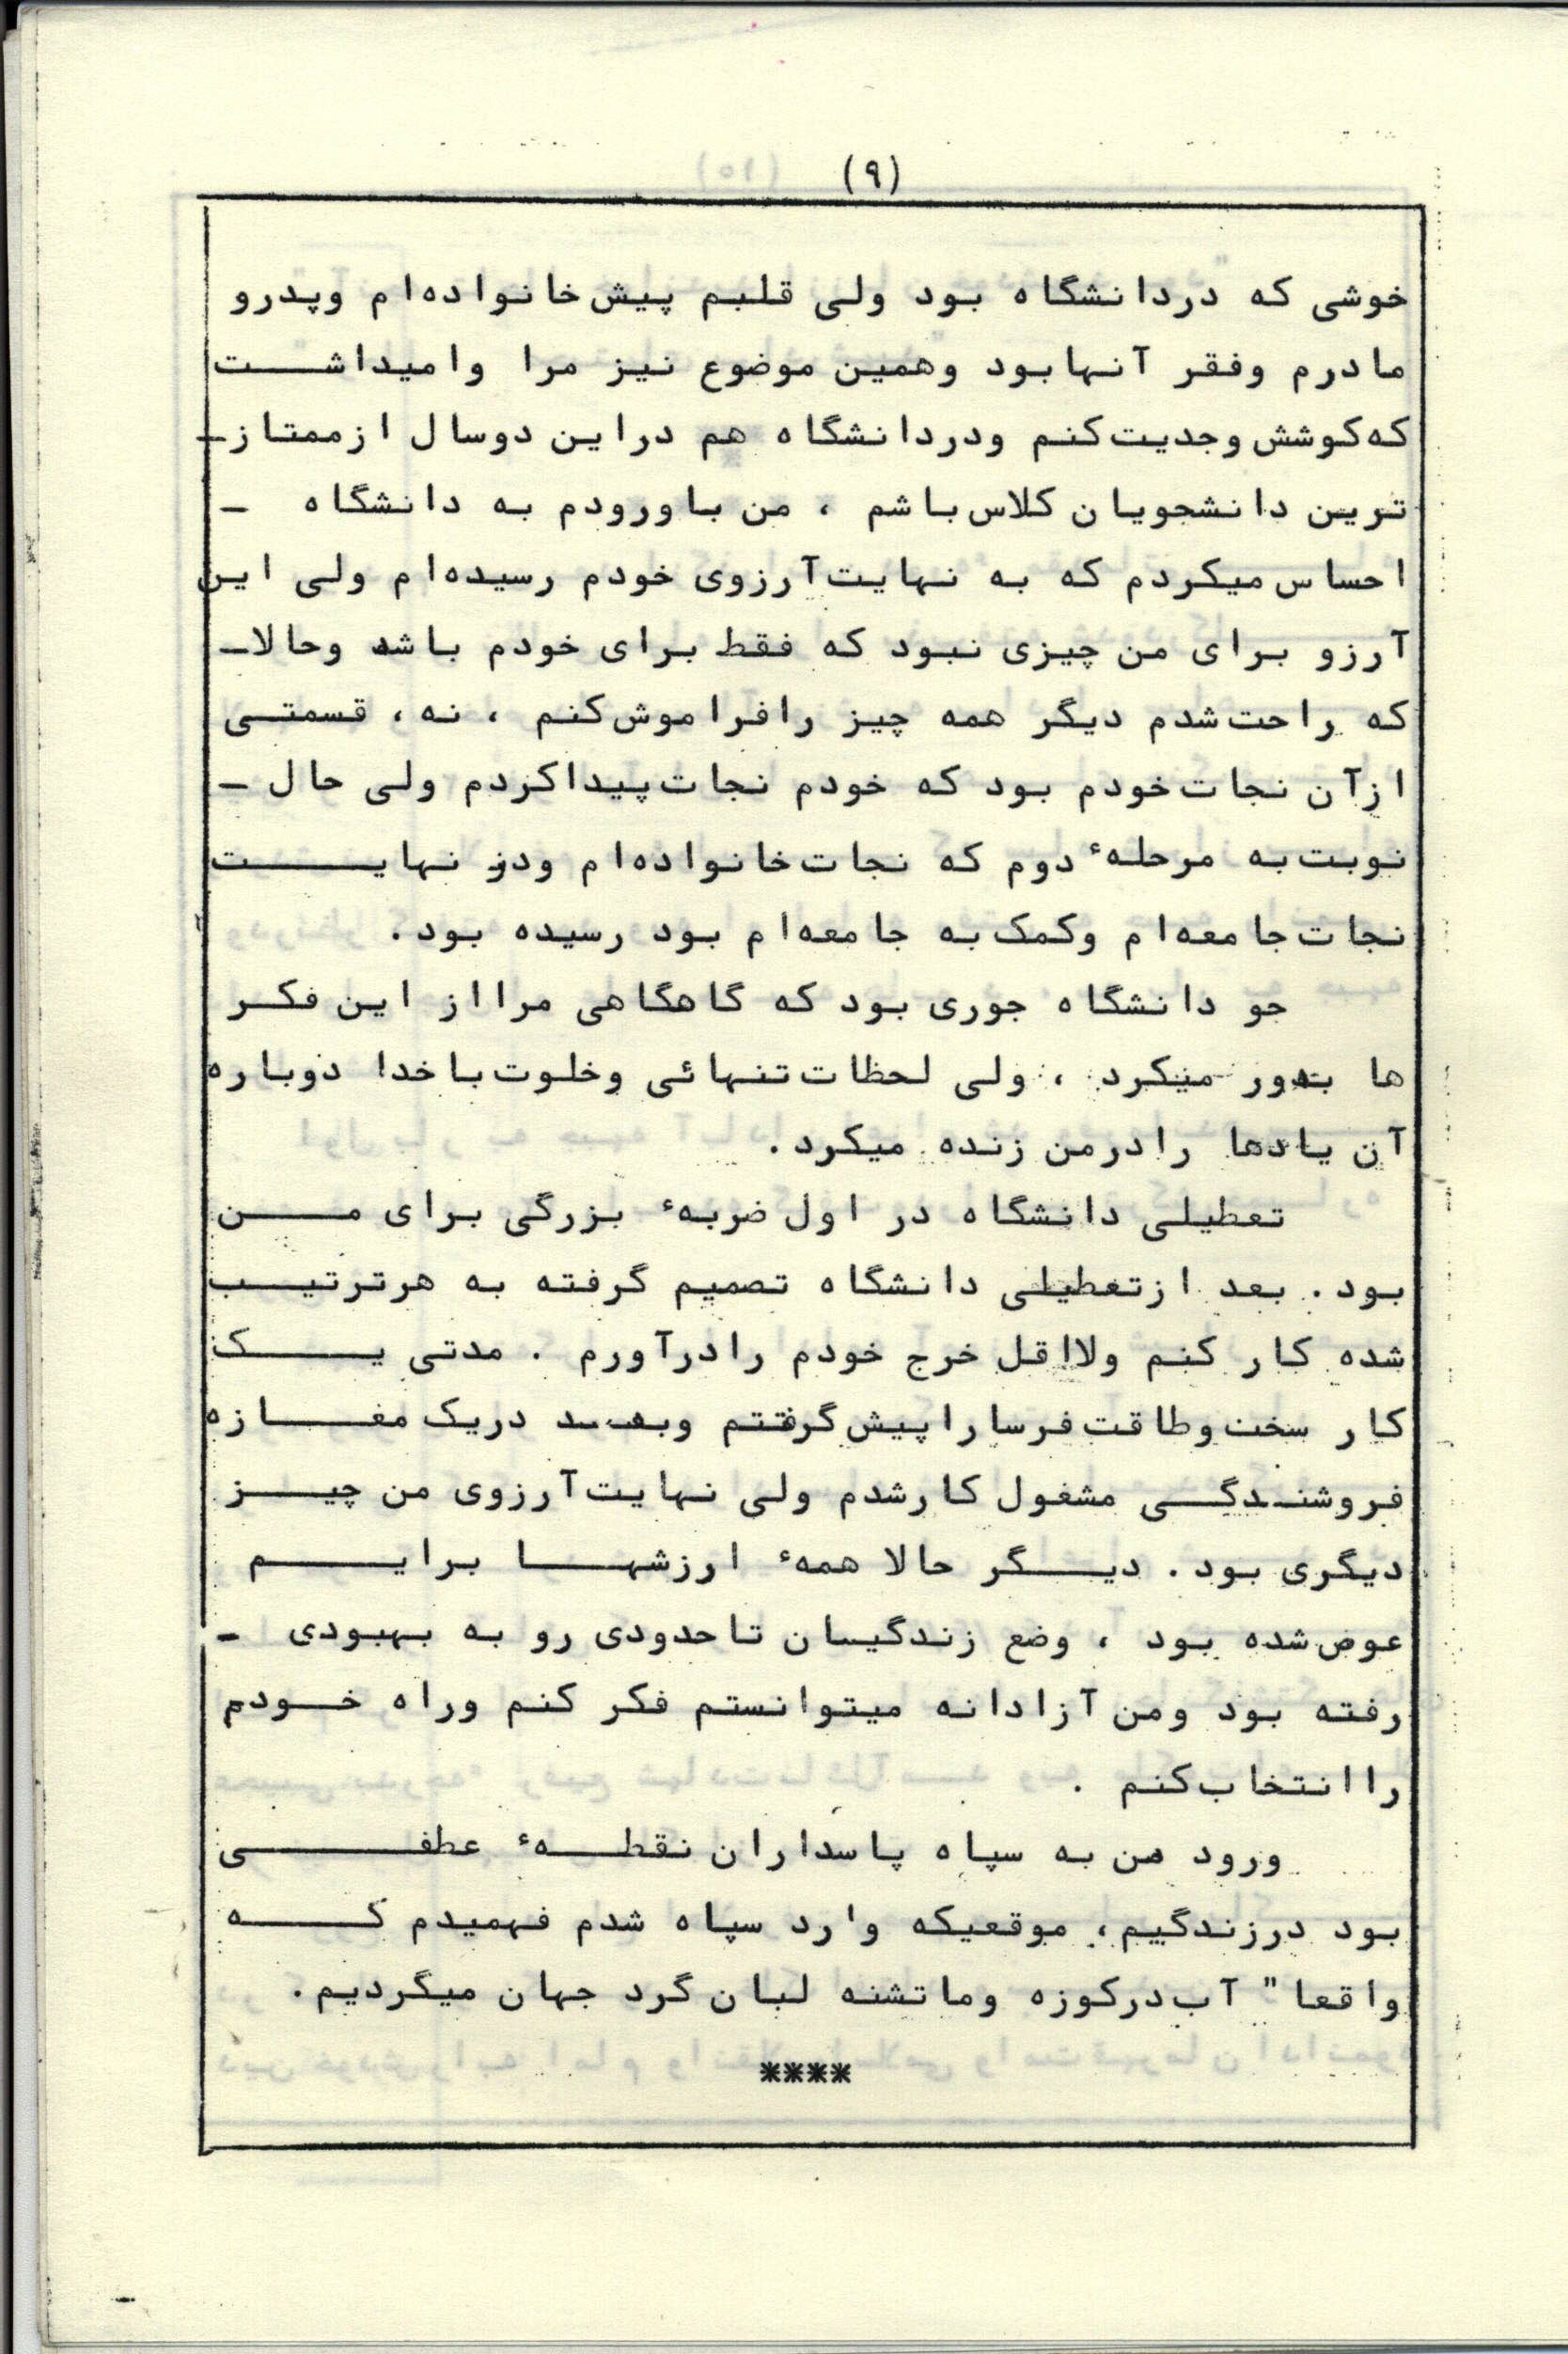 (۹)
خوشی که دردانشگاه بود ولی قلبم پیش خانواده‌ام وپدرو
مادرم وفقر آنهابود وهمین موضوع نیز مرا وامیداشت
که کوشش وجدیت کنم ودردانشگاه هم دراین دوسال ازممتاز-
ترین دانشجویان کلاس باشم ، من باورودم به دانشگاه -
احساس میکردم که به نهایت آرزوی خودم رسیده‌ام ولی این
آرزو برای من چیزی نبود که فقط برای خودم باشد وحالا-
که راحت شدم دیگر همه چیز رافراموش کنم ، نه، قسمتی
ازآن نجات خودم بود که خودم نجات پیداکردم ولی حال -
نوبت به مرحلهٔ دوم که نجات خانواده‌ام ودر نهایت
نجات جامعه‌ام وکمک به جامعه‌ام بود رسیده بود.
جو دانشگاه جوری بود که گاهگاهی مرااز این فکر
ها بدور میکرد ، ولی لحظات تنهائی وخلوت باخدا دوباره
آن یادها رادرمن زنده میکرد.
تعطیلی دانشگاه در اول ضربهٔ بزرگی برای من
بود. بعد ازتعطیلی دانشگاه تصمیم گرفته به هرترتیب
شده کار کنم ولااقل خرج خودم رادرآورم . مدتی یک
کار سخت وطاقت فرسا راپیش گرفتتم وبعد دریک مغازه
فروشندگی مشغول کارشدم ولی نهایت آرزوی من چیز
دیگری بود. دیگر حالا همهٔ ارزشها برایم
عوض شده بود ، وضع زندگیسان تاحدودی رو به بهبودی -
رفته بود ومن آزادانه میتوانستم فکر کنم وراه خودم
راانتخاب کنم .
ورود من به سپاه پاسداران نقطهٔ عطفی
بود درزندگیم، موقعیکه وارد سپاه شدم فهمیدم که
واقعا" آب درکوزه وماتشنه لبان گرد جهان میگردیم.
****